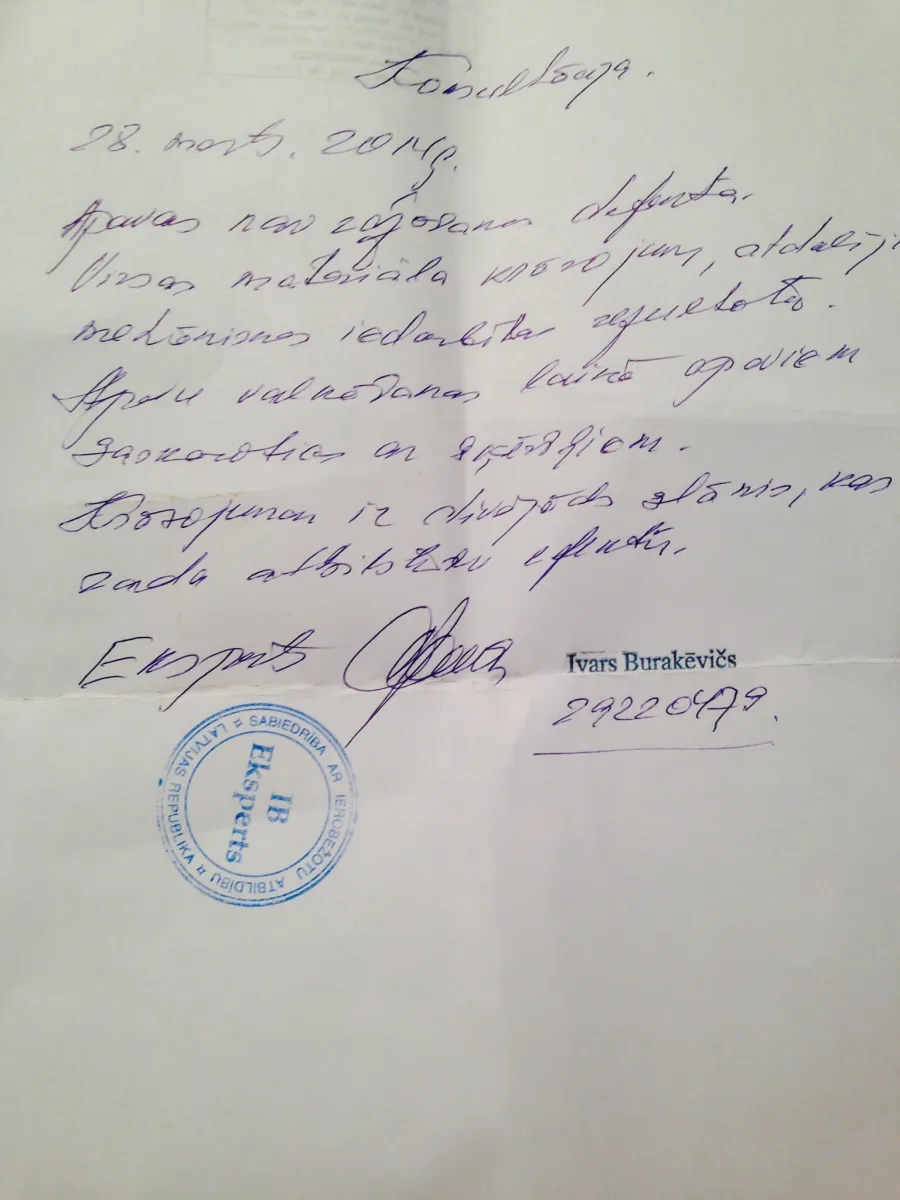 Konsultācija.
28. marts. 2014g.
Apavos nav ražošanas defekta.
Virsas materiāla krāsojums, atdalījies
mehānismas iedarbības rezultātā.
Apavu valkāšanas laikā apaviem
saskaroties ar šķēršļiem.
Krāsojumam ir divējāds slānis, kas
rada atbilstošu efektu.
Eksperts
Ivars Burakēvičs
29220479.
SABIEDRĪBA AR IEROBEŽOTU ATBILDĪBU
LATVIJAS REPUBLIKA
IB
Eksperts